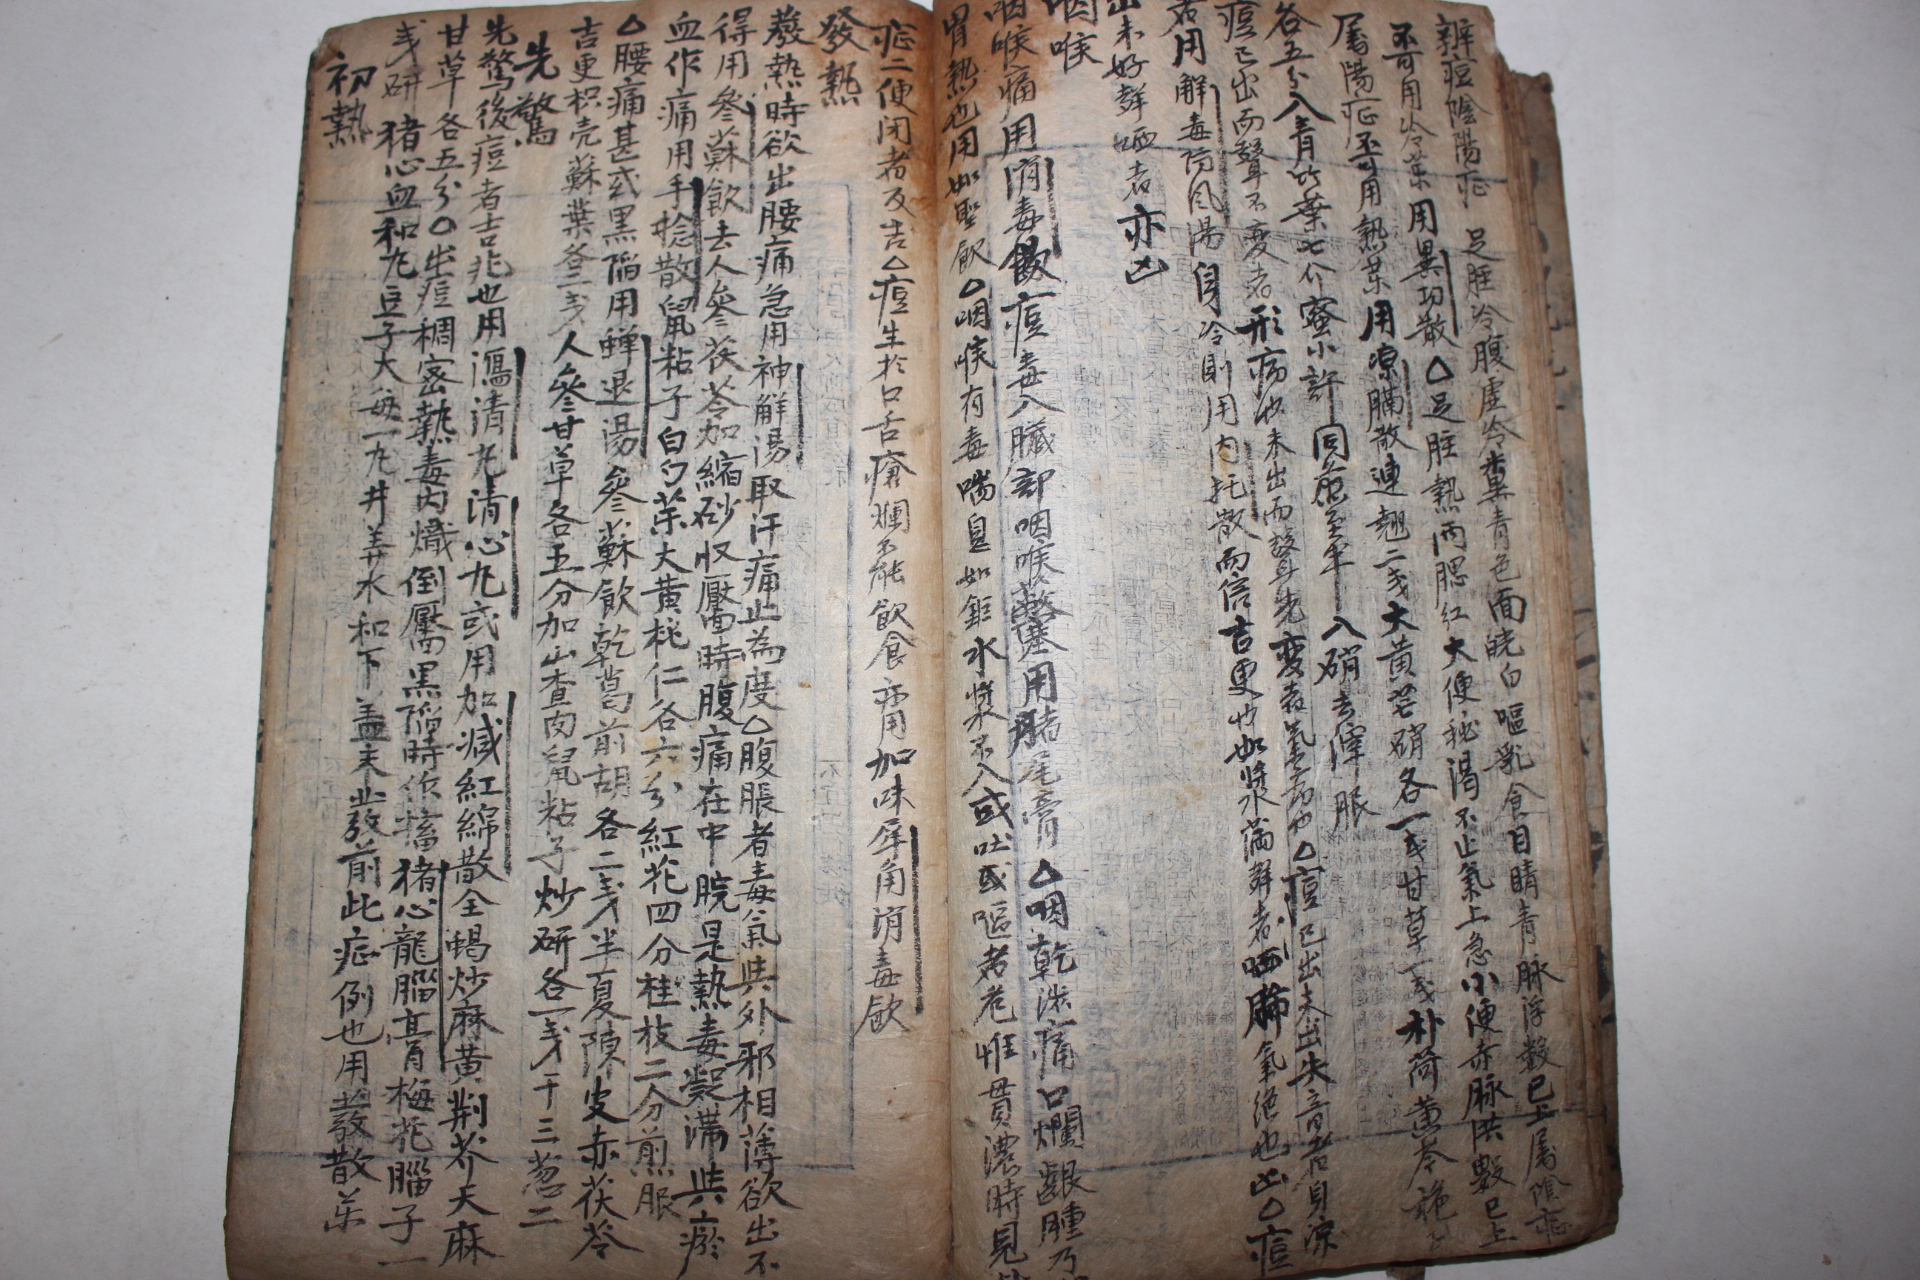 辨痘陰陽症 足脛冷腹虛冷糞青色面㿠白嘔乳食目睛青脉浮數已上屬陰症
不可用冷藥用異功散△足脛熱両腮紅大便秘渴不止氣上急小便赤脉洪數已上
屬陽症不可用熱藥用凉膈散連翹二戔大黃芒硝各一戔甘草一戔朴荷黃芩
各五分入青竹葉七介蜜小許同煎至半入硝去滓服
痘已出而聲不變者形病也未出而聲先變者氣病也△痘已出未出失音者身凉
者用解毒防風湯身冷則用內托散而倍吉更也如漿水滿聲者肺氣絶也凶△痘
出未好聲啞者亦凶
咽喉
咽喉痛用消毒飮痘毒入臟部咽喉蔽塞用猪尾膏△咽乾澁痛口爛齦腫乃
胃熱也用如聖飮△咽喉有毒喘息如鉅水漿不入或吐或嘔者危惟貫濃時見
症二便閉者反吉△痘生於口舌瘡爛不能飮食 痛用加味犀角消毒飮
發熱
發熱時欲出腰痛急用神解湯取汗痛止為度△腹脹者毒氣與外邪相薄欲出不
得用參蘇飮去人參茯苓加縮砂收靨時腹痛在中脘是熱毒凝滯與瘀
血作痛用手捻散鼠粘子白勺藥大黃桃仁各六分紅花四分桂枝二分煎服
△腰痛甚或黑陷用蟬退湯參蘇飮乾葛前胡各二戔半夏陳皮赤茯苓
吉更枳壳蘇葉各三戔人參甘草各五分加山査肉鼠粘子炒研各一戔干三葱二
先驚
先驚後痘者吉兆也用瀉清丸清心丸或用加减紅綿散全蝎炒麻黃荆芥天麻
甘草各五分○出痘稠密熱毒內熾倒靨黑陷時作搐猪心龍腦膏梅花腦子一
戔研猪心血和丸豆子大每一丸井弄水和下盖未發前此症例也用發散藥
初熱